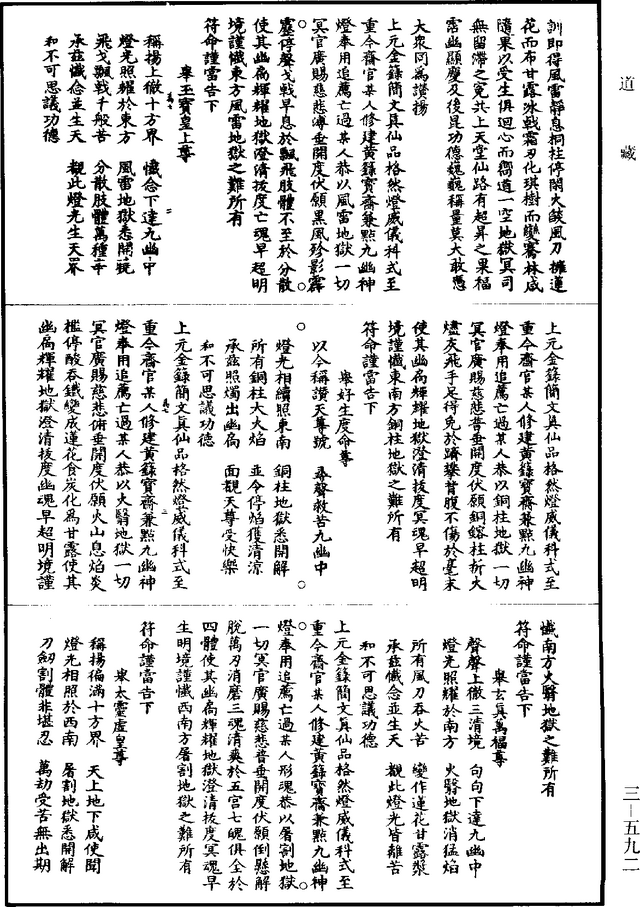 道藏
訓即得風雷靜息桐柱停閑火燄風刀擁蓮
花而布甘露冰戟霜刃化琪樹而變騫林咸
隨果以受生俱迴心而嚮道一空地獄冥司
無留滯之寃共上天堂仙路有超昇之果福
霑幽顯慶及後昆功德巍巍稱量莫大敢憑
大衆同爲讚揚
上元金籙簡文真仙品格然燈威儀科式至
重今齋官某人修建黃籙寶齋兼點九幽神
燈奉用追薦亡過某人恭以風雷地獄一切
冥官廣賜慈悲溥垂開度伏願黑風殄影霹
靂停聲戈戟早息於飄飛肢體不至於分散
使其幽扃輝耀地獄澄清拔度亡魂早超明
境謹懺東方風雷地獄之難所有
符命謹當告下
舉玉寶皇上尊
稱揚上徹十方界 懺念下達九幽中
燈光照耀於東方 風雷地獄悉開曉
飛戈飄戟千般苦 分散肢體萬種辛
承茲懺念並生天 觀此燈光生天界
和不可思議功德
上元金籙簡文真仙品格然燈威儀科式至
重今齋官某人修建黃籙寶齋兼點九幽神
燈奉用追薦亡過某人恭以銅柱地獄一切
冥官廣賜慈悲普垂開度伏願銅鎔柱折火
燼灰飛手足得免於躋攀背腹不傷於毫末
使其幽扃輝耀地獄澄清拔度冥魂早超明
境謹懺東南方銅柱地獄之難所有
符命謹當告下
舉好生度命尊
以今稱讚天尊號 尋聲救苦九幽中
燈光相續照東南 銅柱地獄悉開解
所有銅柱大火焰 並令停焰獲清涼
承茲照燭出幽扃 面覩天尊受快樂
和不可思議功德
上元金籙簡文真仙品格然燈威儀科式至
重今齋官某人修建黃籙寶齋兼點九幽神
燈奉用追薦亡過某人恭以火翳地獄一切
冥官廣賜慈悲俯垂開度伏願火山息焰炎
檻停酸吞鐵變成蓮花食炭化爲甘露使其
幽扃輝耀地獄澄清拔度幽魂早超明境謹
懺南方火翳地獄之難所有
符命謹當告下
舉玄真萬福尊
聲聲上徹三清境 句句下達九幽中
燈光照耀於南方 火翳地獄消猛焰
所有風刀吞火苦 變作蓮花甘露漿
承茲懺念並生天 觀此燈光皆離苦
和不可思議功德
上元金籙簡文真仙品格然燈威儀科式至
重今齋官某人修建黃籙寶齋兼點九幽神
燈奉用追薦亡過某人形魂恭以屠割地獄
一切冥官廣賜慈悲普垂開度伏願倒懸解
脫萬刃消磨三魂清爽於五宮七魄俱全於
四體使其幽扃輝耀地獄澄清拔度冥魂早
生明境謹懺西南方屠割地獄之難所有
符命謹當告下
舉太靈虛皇尊
稱揚徧滿十方界 天上地下咸使聞
燈光相照於西南 屠割地獄悉開解
刀劒割體非堪忍 萬劫受苦無出期
三-五九二